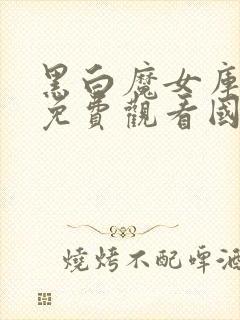 黑白魔女庫
免費觀看國
燒烤不配啤酒